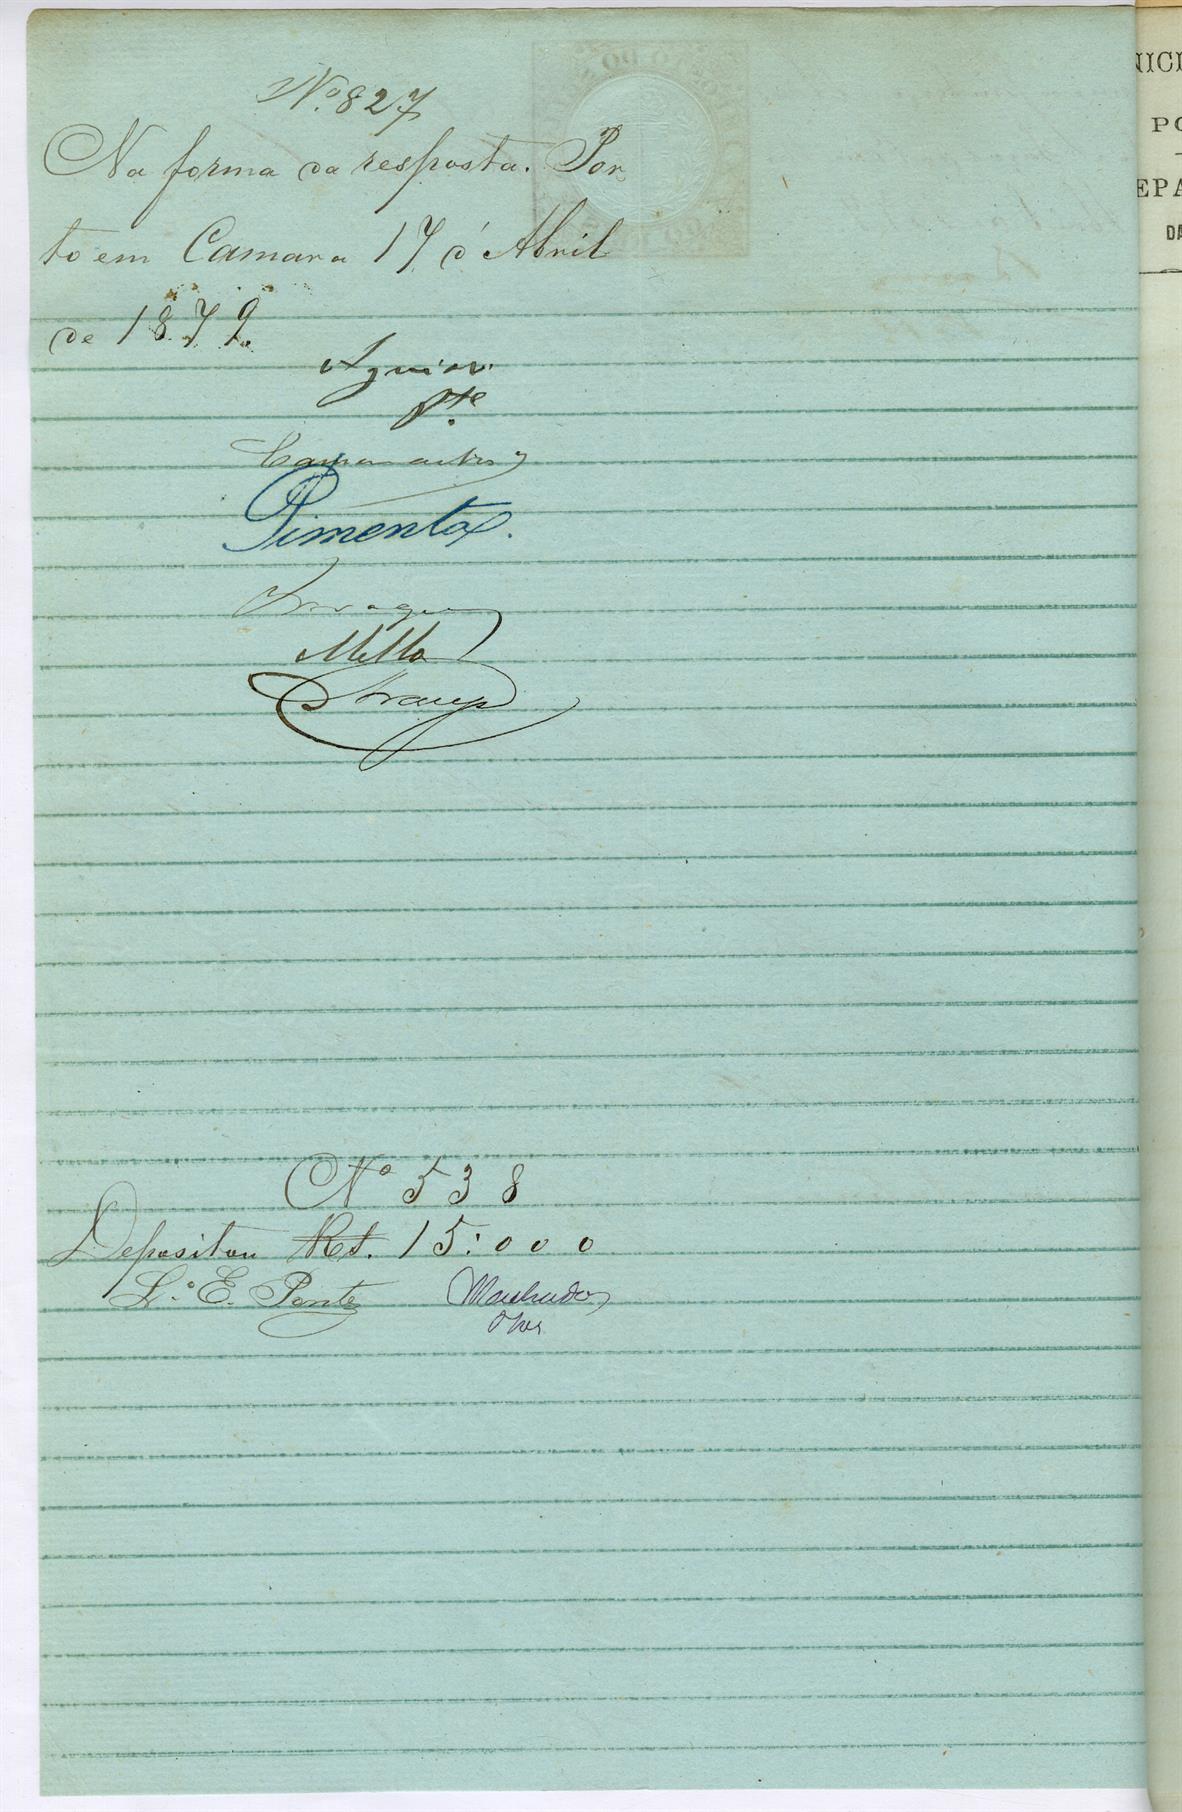 Nº 827
Na forma da resposta. Por
to em Camara 17 d' Abril
de 1879.
Aguiar
Pte
Pimenta.
Mello
Araujo
Nº 538
Depositou Rs. 15:000
L.º E. Pontes Machado
NICI
PO
EPA
DA